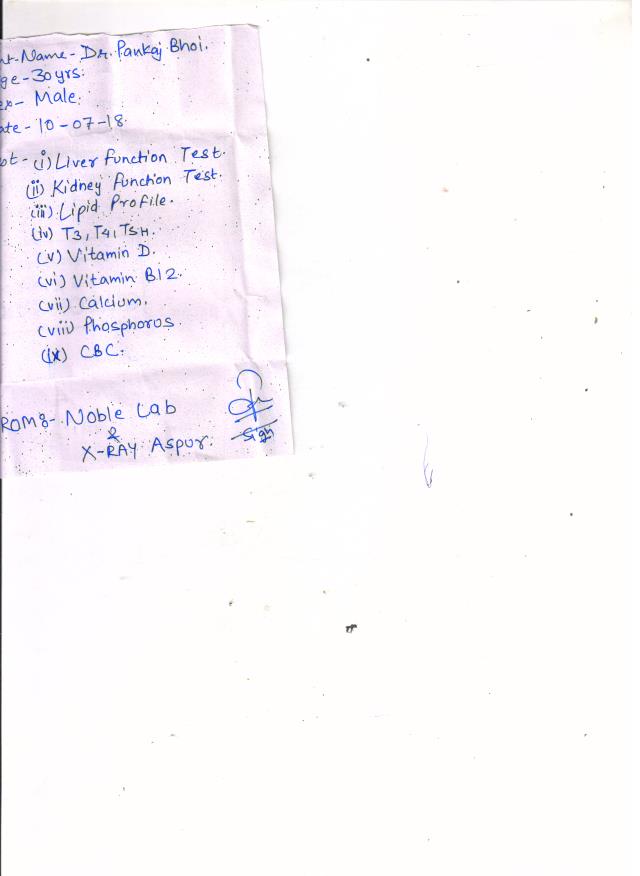 nt-Name - Dr. Pankaj Bhoi.
ge - 30 yrs.
ex - Male.
ate - 10-07-18.
st - (i) Liver function Test.
(ii) Kidney function Test.
(iii) Lipid Profile.
(iv) T3, T4, TSH.
(v) Vitamin D.
(vi) Vitamin B12.
(vii) Calcium.
(viii) Phosphoros.
(ix) CBC.
ROM:- Noble Lab
&
X-RAY Aspur.
Sign